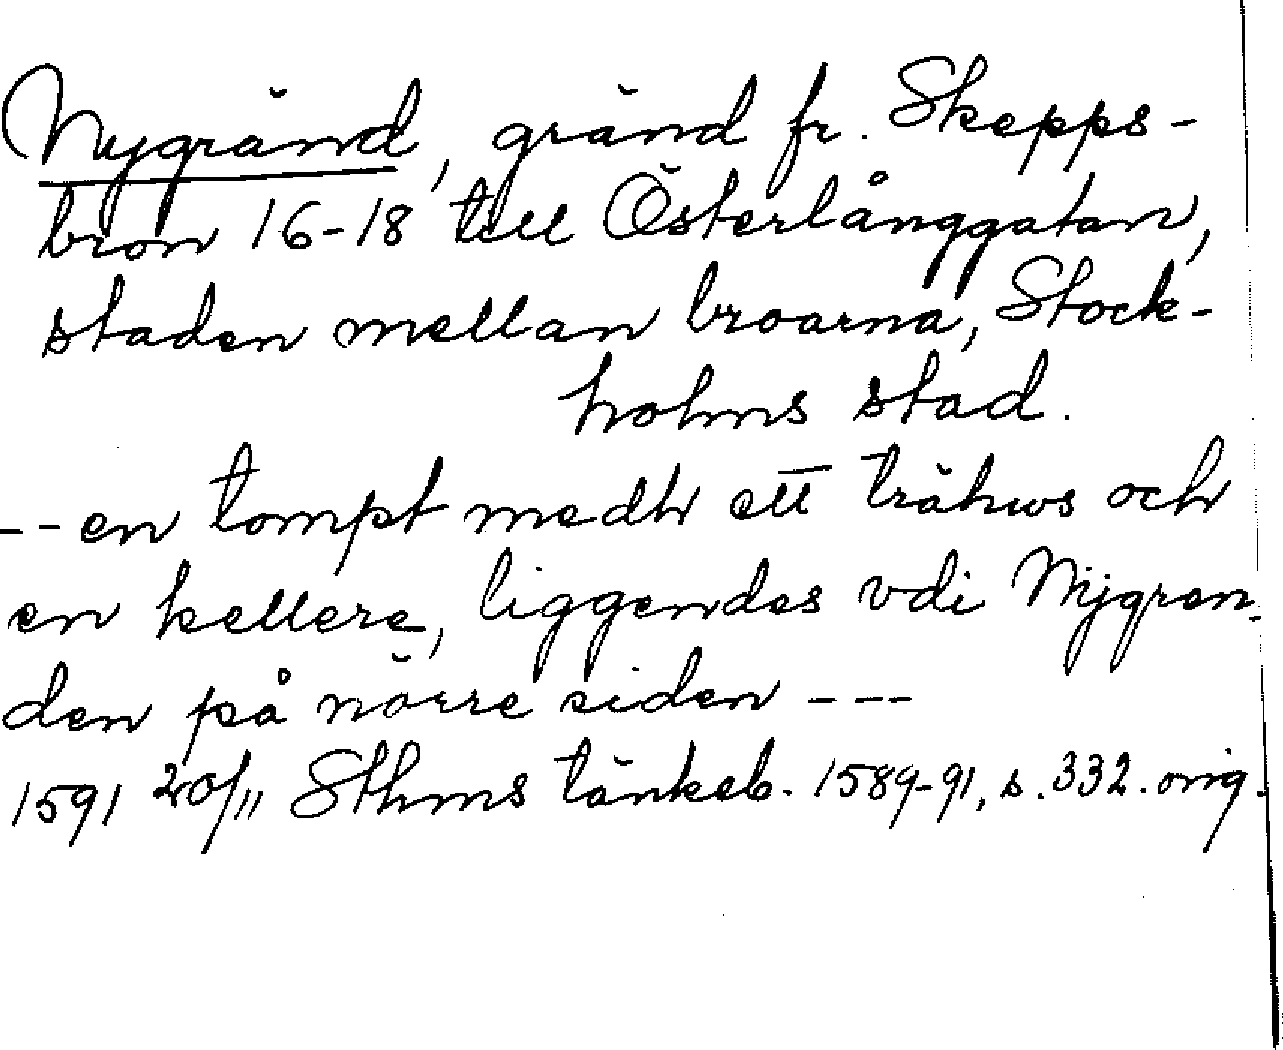 Nygränd, gränd fr. Skepps-
bron 16-18 till Österlånggatan,
staden mellan broarna, Stock-
holms stad.
-- en tompt medh ett trähws och
en kellere, liggendes vdi Nijgren-
den på nörre siden ---
1591 20/11 Sthms tänkeb. 1589-91, s. 332. orig.